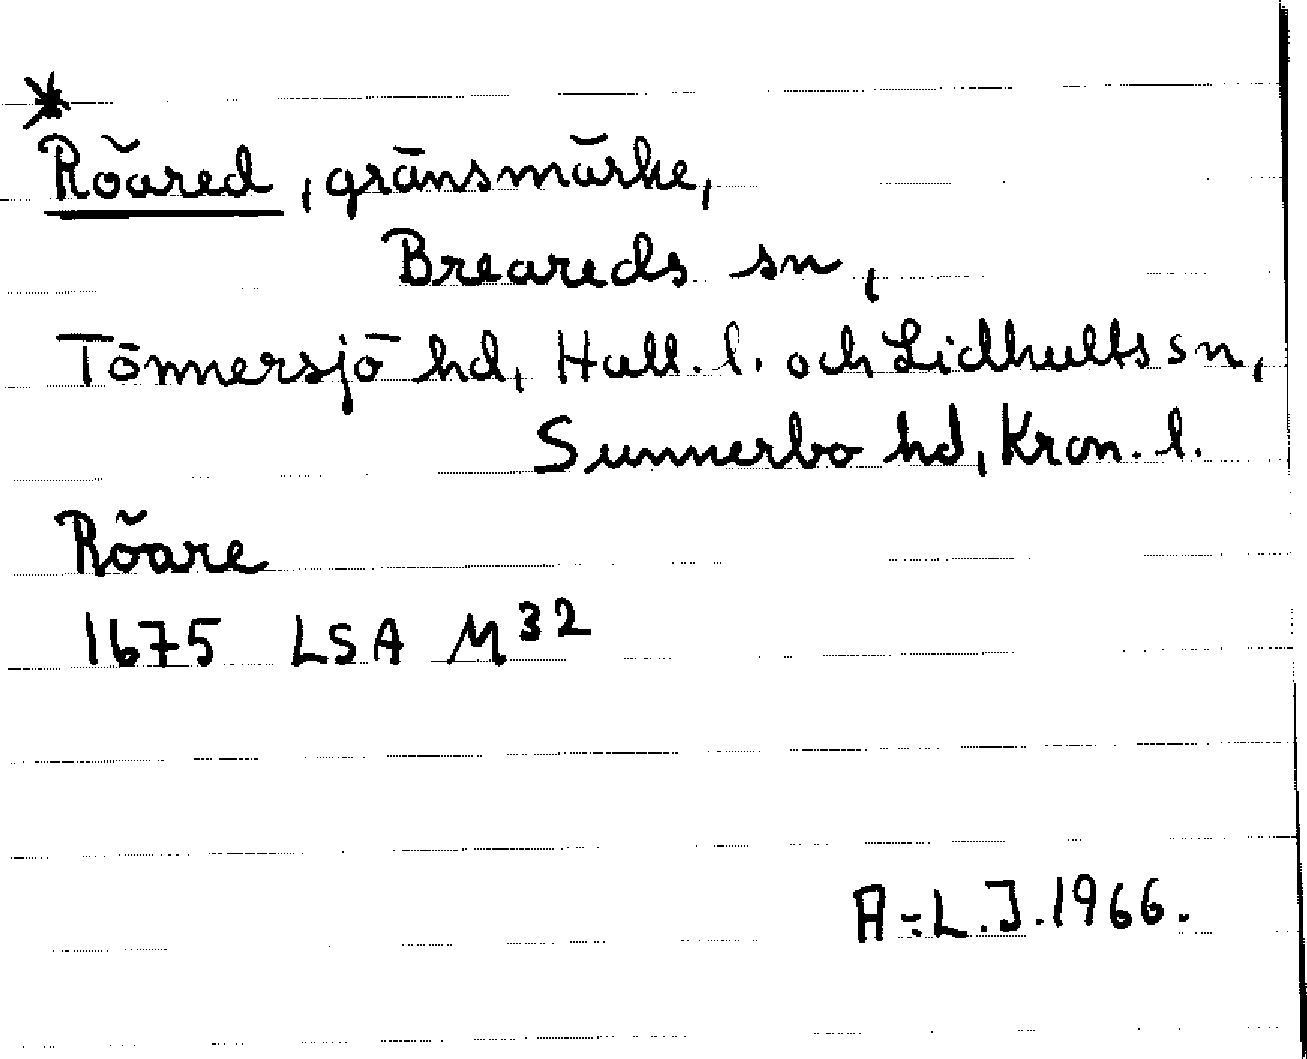 *
Röared, gränsmärke,
Breareds sn,
Tönnersjö hd, Hall. l. och Lidhults sn,
Sunnerbo hd, Kron. l.
Röare
1675 LSA M32
A-L.J. 1966.